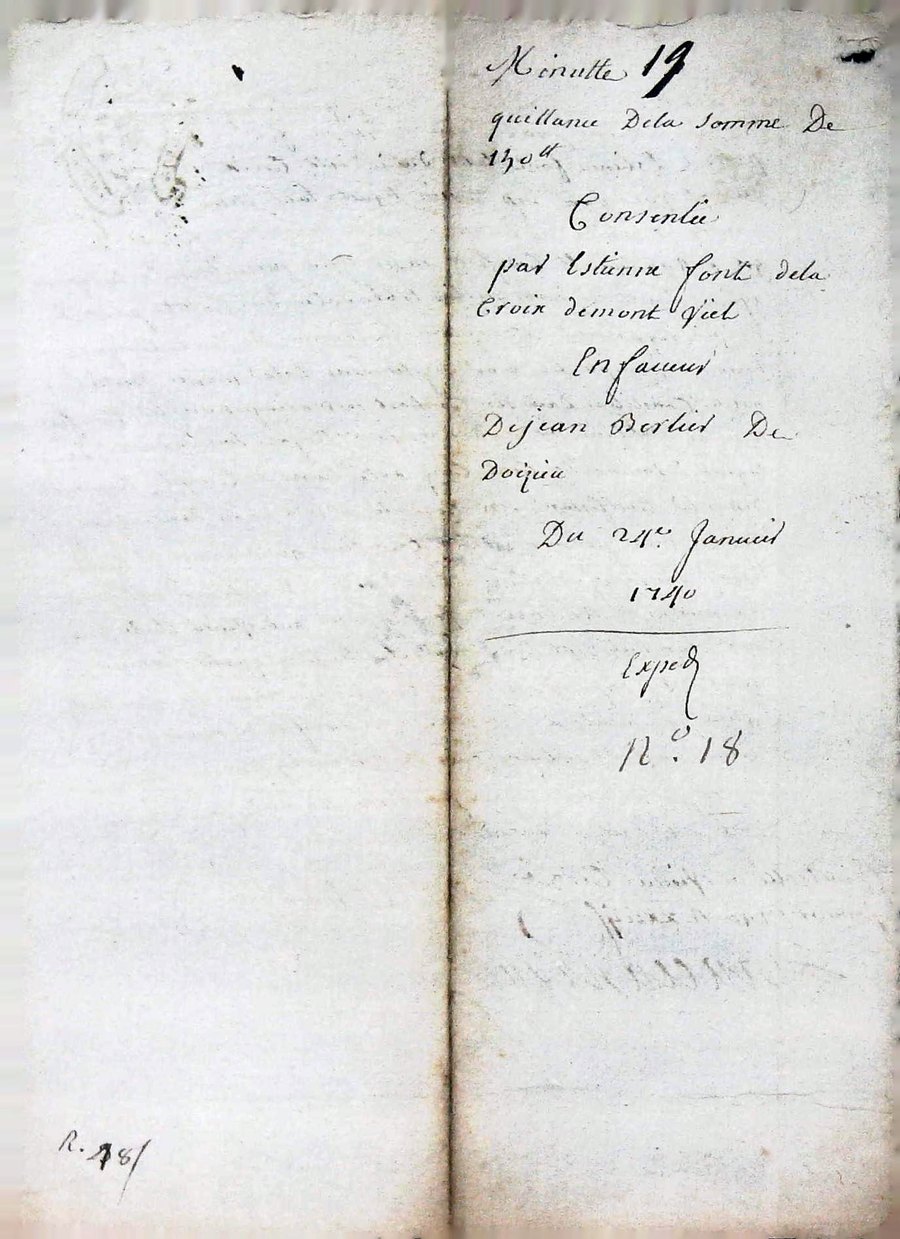 Minutte 19
quittance Dela somme De
130tt
Consentie
par Estienne font dela
Croix demont Viel
En faueur
Dejean Berlier De
Doizieu
Du 24e. Januier
1740
Exped
No. 18
R. 18/